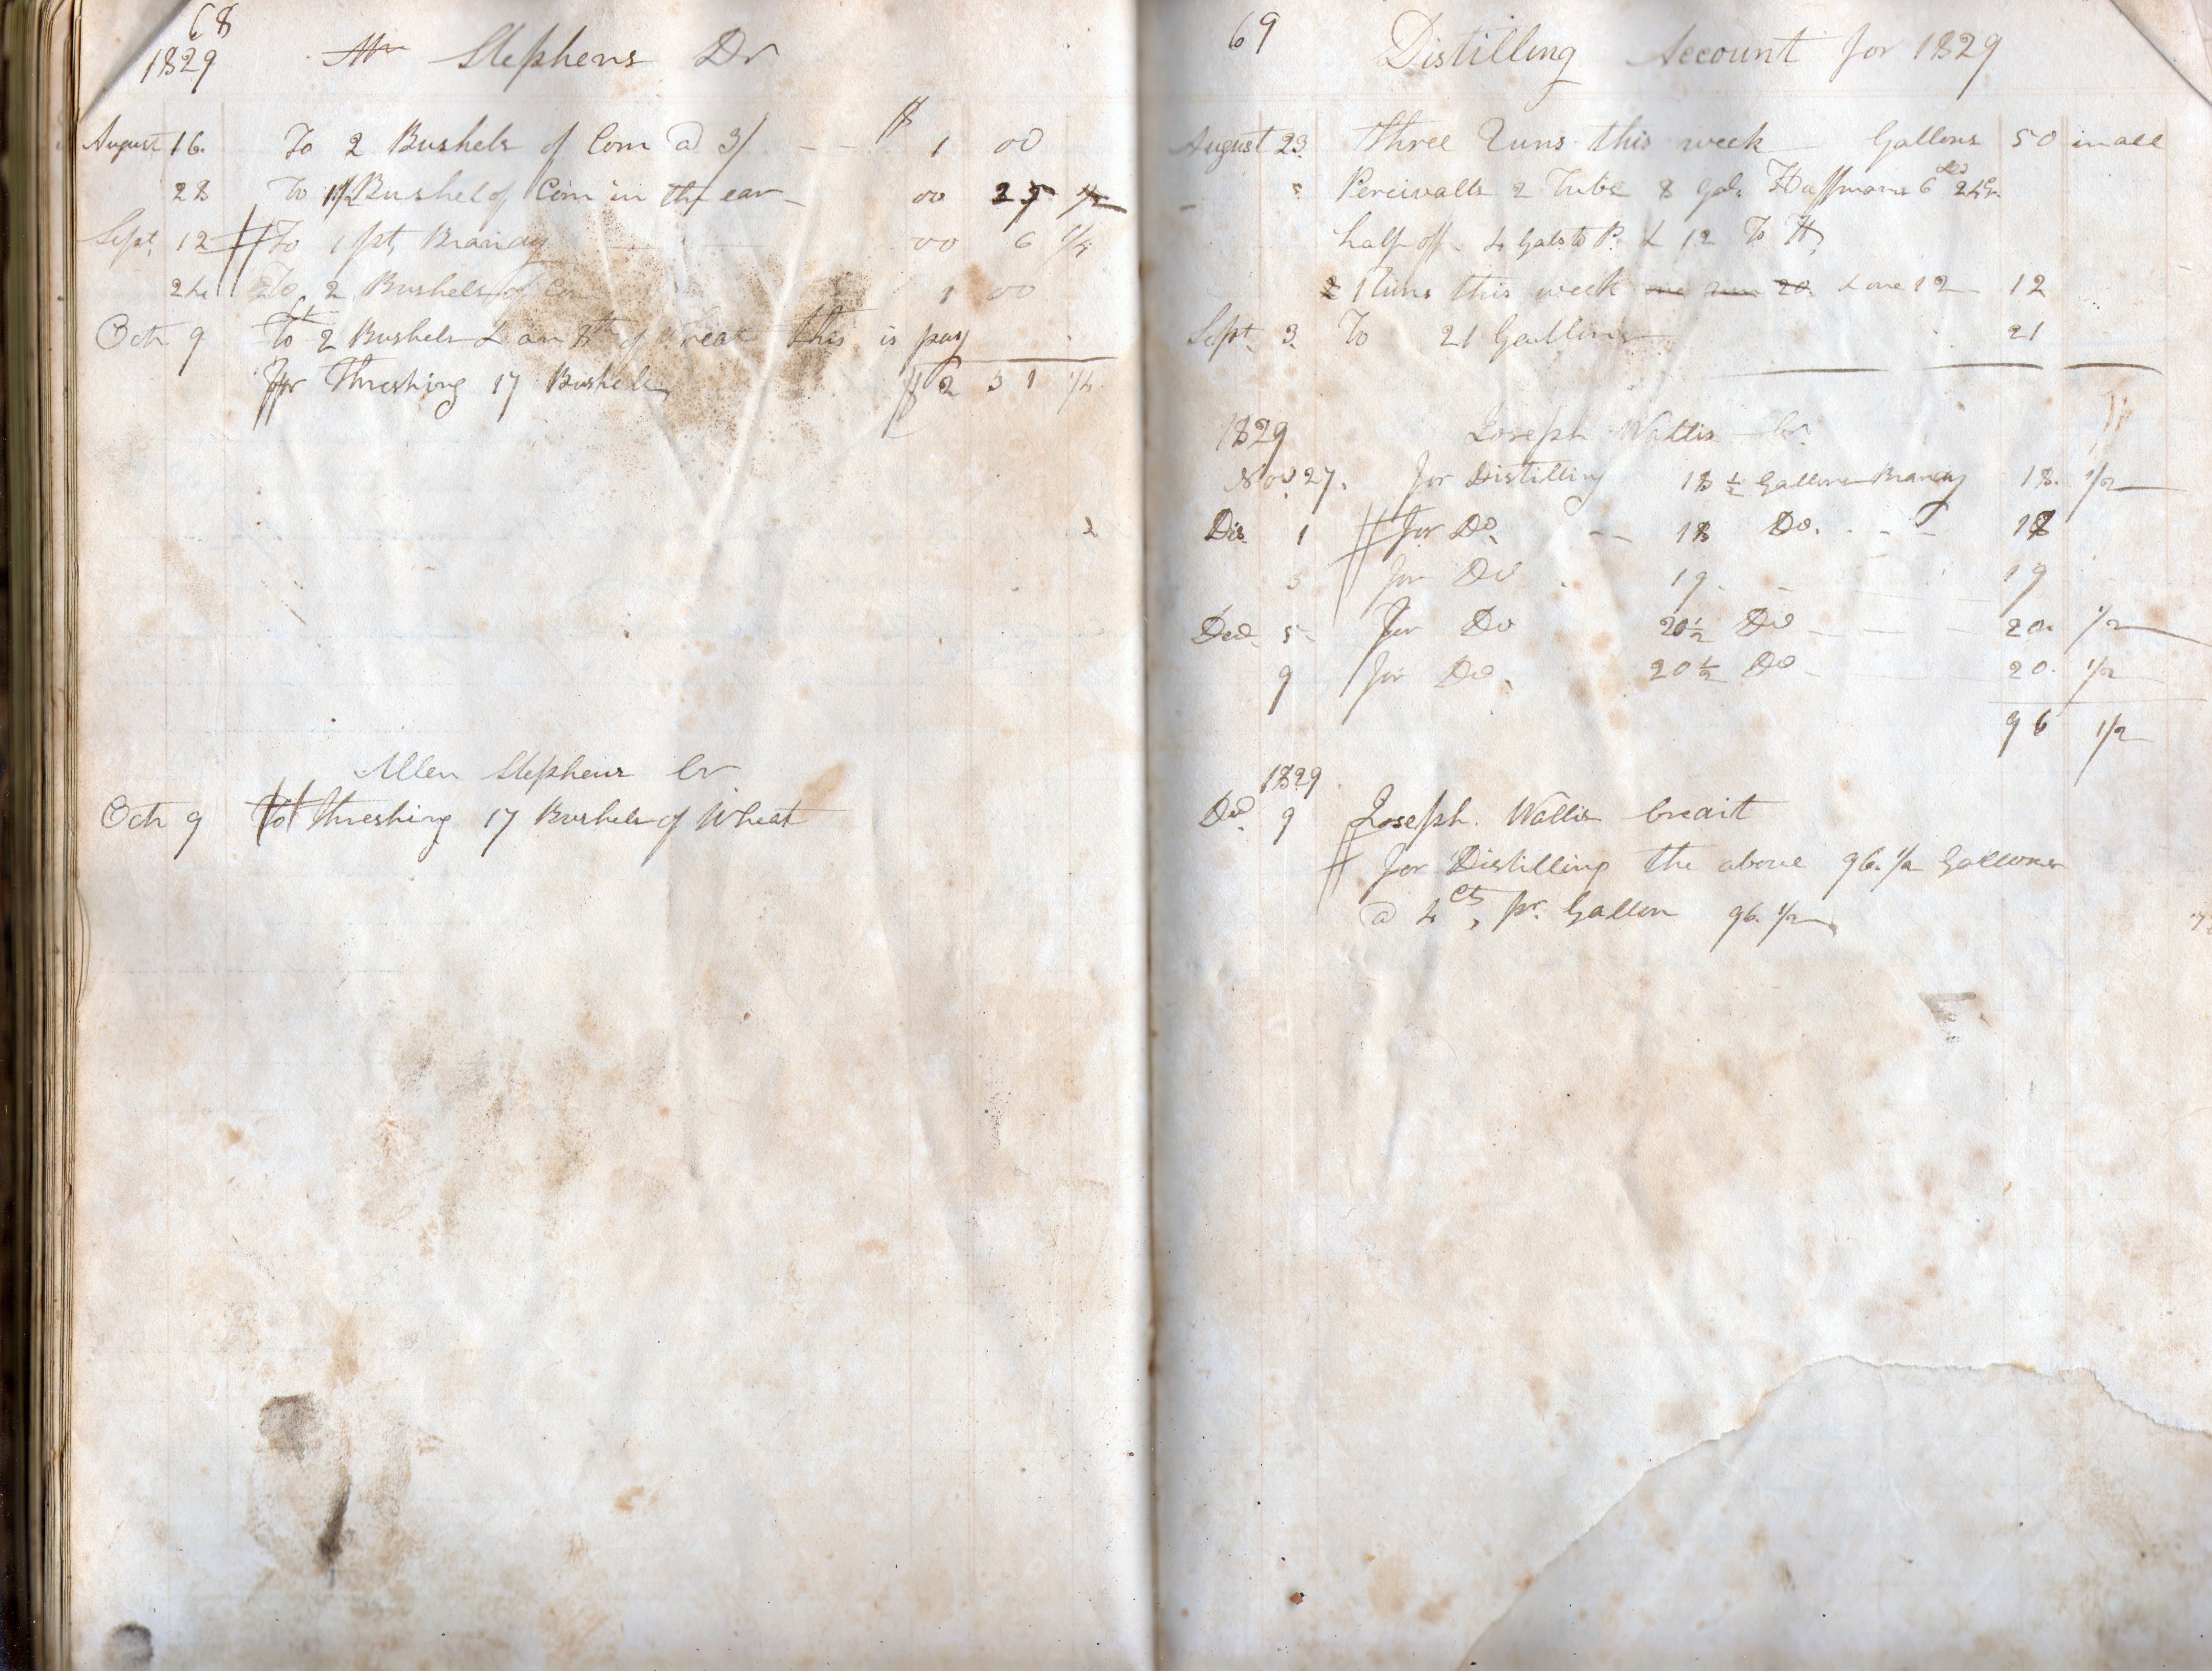 68
1829 Mr Stephens Dr
$
August 16. To 2 Bushels of Corn @ 3/ 1 00
28 To 1/2 Bushel of Corn in the ear 00 25
Sept. 12 To 1 pt, Brandy 00 6 1/4
24 To 2 Bushels of Corn 1 00
Octr 9 To 2 Bushels & an 8th of Wheat this is pay
for Threshing 17 Bushels $2 31 1/4
Allen Stephens Cr
Octr 9 To Threshing 17 Bushels of Wheat
69
Distilling Account for 1829
August 23. Three Runs this week Gallons 50 in all
Percivalls 2 Tubs 8 gals Hoffmans 6 Do 24
half off 4 Gals to P. & 12 To H
1 Runs this week one run 20 & one 12 12
Sept. 3. To 21 Gallons 21
1829 Joseph Wallis Cr.
Nov 27. for Distilling 18 1/2 Gallons Brandy 18. 1/2
Dis. 1 for Do. 18 Do. 18
3 for Do 19. 19
Dec 5 for Do 20 1/2 Do 20. 1/2
9 for Do. 20 1/2 Do 20. 1/2
96 1/2
1829
Do 9 Joseph. Wallis Creait
for Distilling the above 96. 1/2 Gallons
@ 4 cts, pr. Gallon 96. 1/2